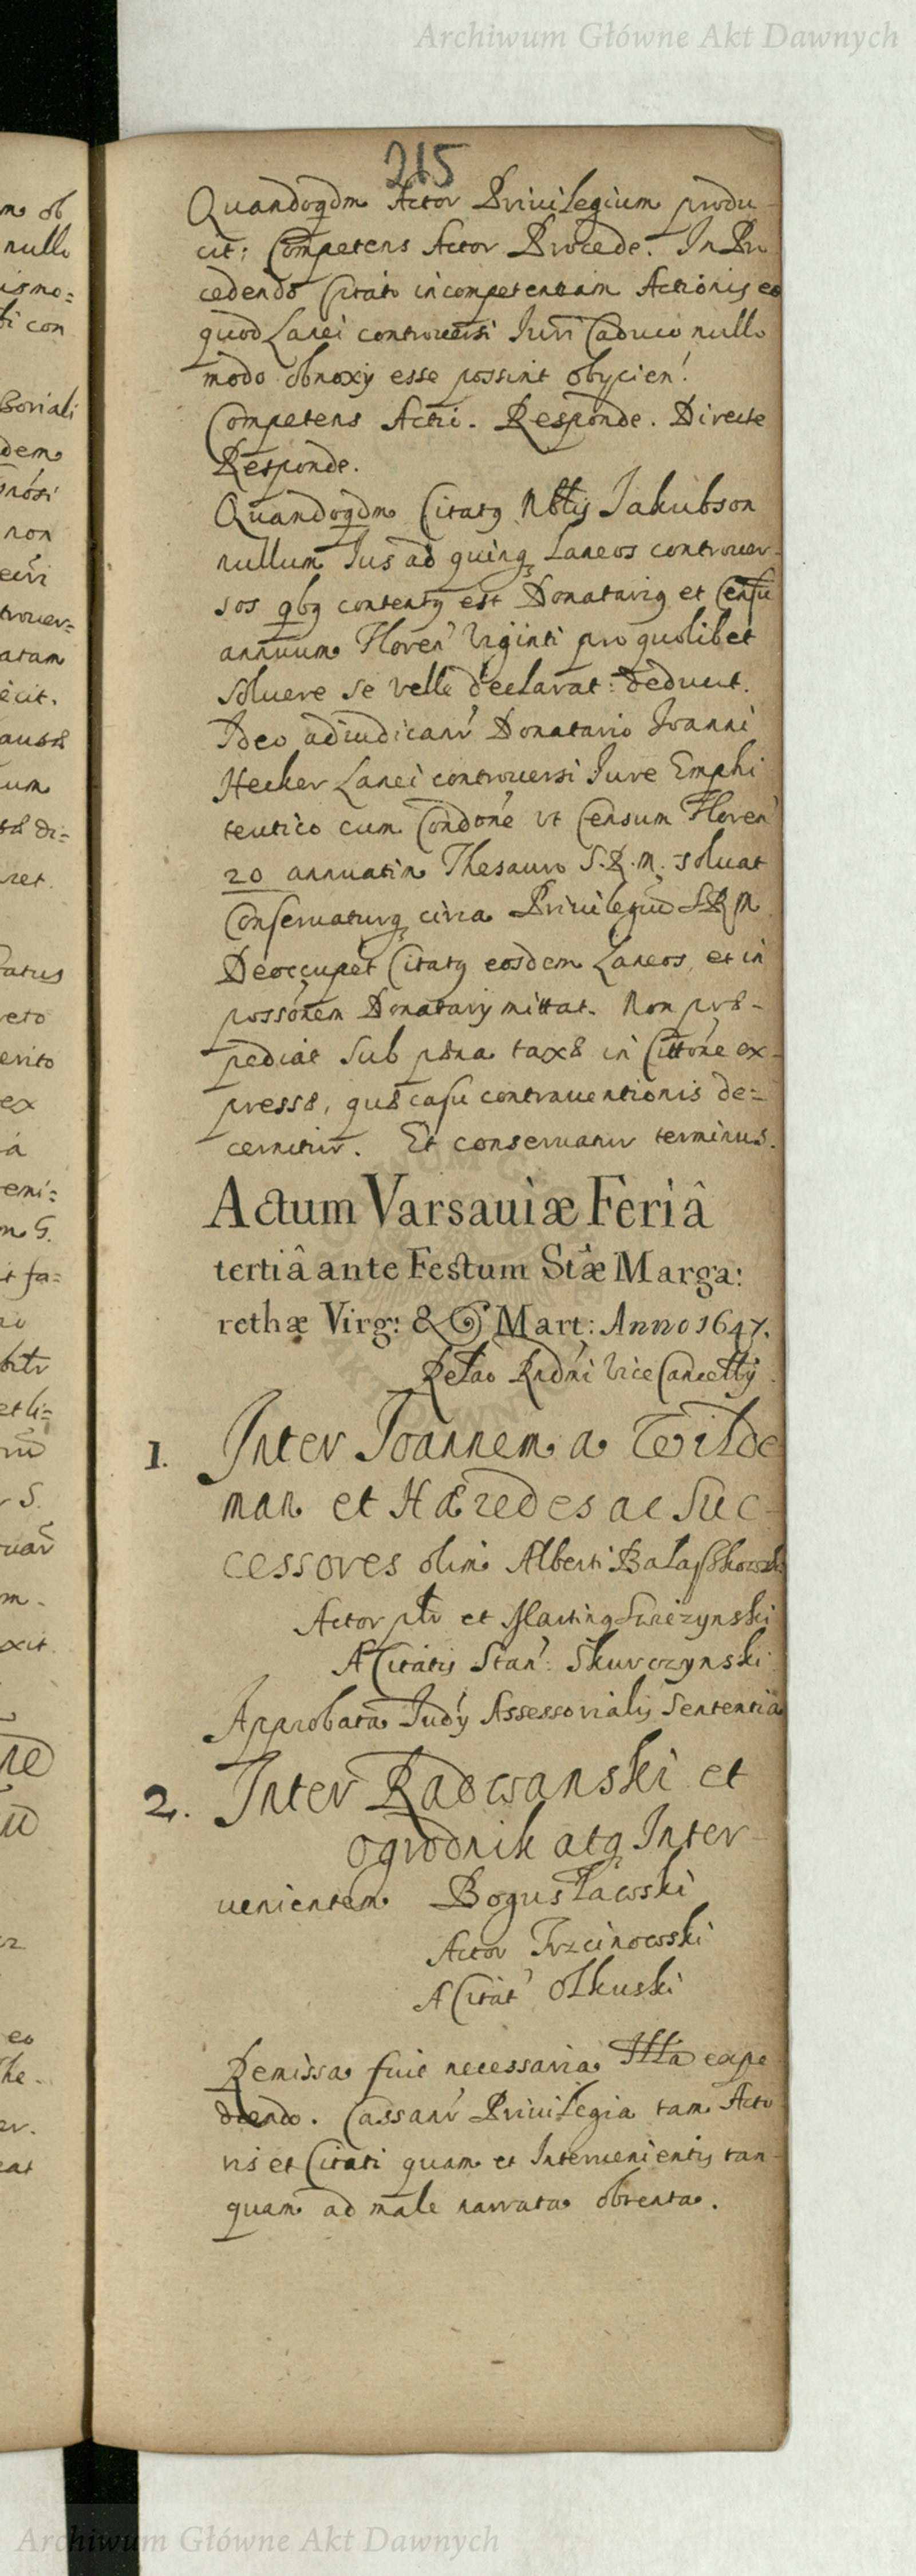 Archiwum Główne Akt Dawnych
215
Quandoqdm Actor Privilegium produ
cit: Competens Actor Procede. In Pro
cedendo Citato incompetentiam Actionis eo
quod Lanei controuersi Iuri Caduco nullo
modo obnoxy esse possint obycien:
Competens Actri. Responde. Directe
Responde.
Quandoqdm Citatq Nbtlis Jakubson
nullum Ius ad quinq Laneos controuer-
sos qbq contentq est Donatariq et Censu
annuum Floren Viginti pro quolibet
soluere se velle declarat: deducit.
Ideo adiudicanr Donatario Joanni
Hecker Lanei controuersi Jure Emphi
teutico cum Condone vt Censum Floren
20 annuatim Thesauro S.R.M. soluat
Conseruaturq circa Priuilegiū S R M
Deoccupet Citatq eosdem Laneos, et in
possonem Donatary mittat. Non præ-
pediat sub pæna taxæ in Cittone ex-
pressæ, quæ casu contrauentionis de=
cernitur. Et conseruatur terminus.
Actum Varsauiæ Feriâ
tertiâ ante Festum Stæ Marga:
rethæ Virg: & Mart: Anno 1647.
Relao Rndni Vice Cancelly
1. Inter Joannem a Wilde
man et Hæredes ac Suc-
cessores olim Alberti
Actor ptr et Martinq
A Citatis Stan: Skurczynski
Approbata Judy Assessorialis Sententia
2. Inter Radwanski et
Ogrodnik atq Inter-
uenientem Bogusławski
Actor Trzcinowski
A Citat Olkuski
Remissa fuit necessaria Illa expe
diendo. Cassanr Priuilegia tam Acto
ris et Citati quam et Interuenientis tan-
quam ad male narrata obtenta.
m ob
nullo
ismo:
con
Boriali
dem
non
trouer=
atam
ecit.
um
di=
ret.
atus
reto
erito
ex
a
eni:
m S.
fa=
S.
m.
oxit.
eo
he.
eat
Archiwum Główne Akt Dawnych